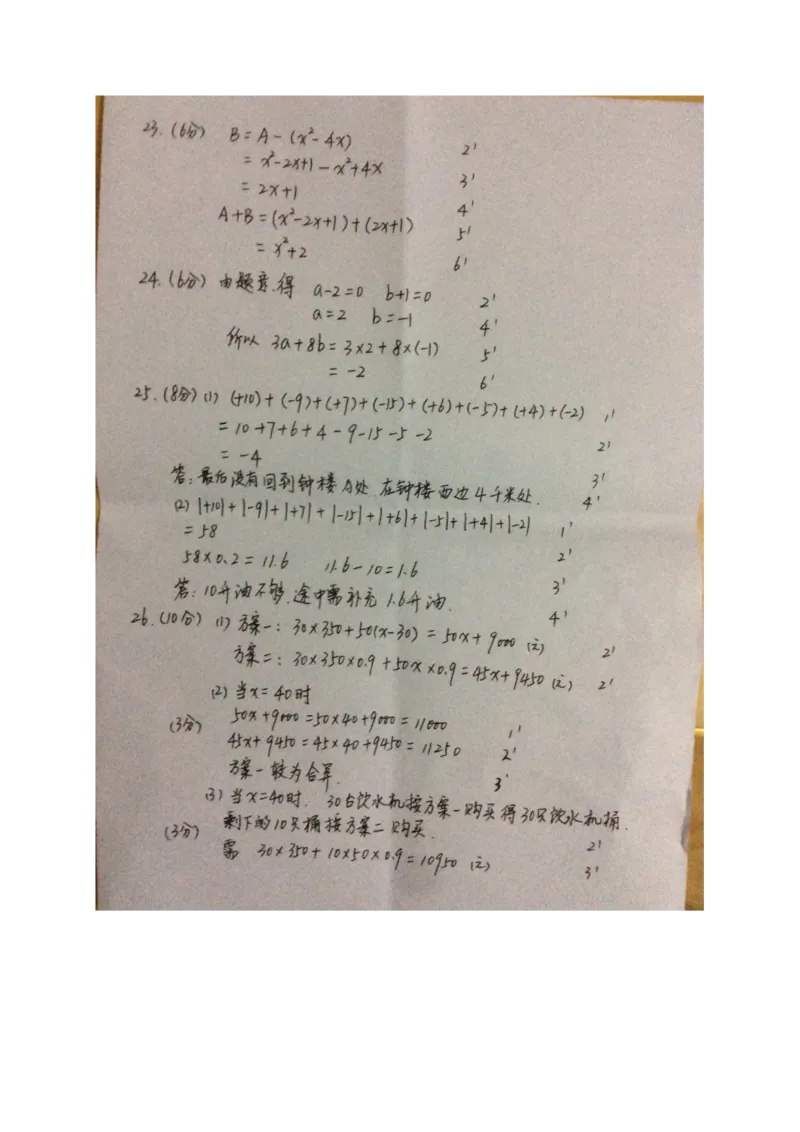 23. (6分) B=A-(x²-4x) 2'
=x²-2x+1-x²+4x 3'
=2x+1 4'
A+B=(x²-2x+1)+(2x+1) 5'
=x²+2 6'
24. (6分) 由题意,得 a-2=0 b+1=0 2'
a=2 b=-1 4'
所以 3a+8b=3×2+8×(-1) 5'
=-2 6'
25. (8分) (1) (+10)+(-9)+(+7)+(-15)+(+6)+(-5)+(+4)+(-2) 1'
=10+7+6+4-9-15-5-2 2'
=-4 3'
答:最后没有回到钟楼A处.在钟楼西边4千米处. 4'
(2) |+10|+|-9|+|+7|+|-15|+|+6|+|-5|+|+4|+|-2| 1'
=58 2'
58×0.2=11.6 11.6-10=1.6 3'
答:10升油不够.途中需补充1.6升油. 4'
26. (10分) (1) 方案一: 30×350+50(x-30)=50x+9000 (元) 2'
方案二: 30×350×0.9+50x×0.9=45x+9450 (元) 2'
(2) 当x=40时
(3分) 50x+9000=50×40+9000=11000 1'
45x+9450=45×40+9450=11250 2'
方案一较为合算. 3'
(3) 当x=40时. 30台饮水机按方案一购买得30只饮水机桶.
(3分) 剩下的10只桶按方案二购买. 2'
需 30×350+10×50×0.9=10950 (元) 3'